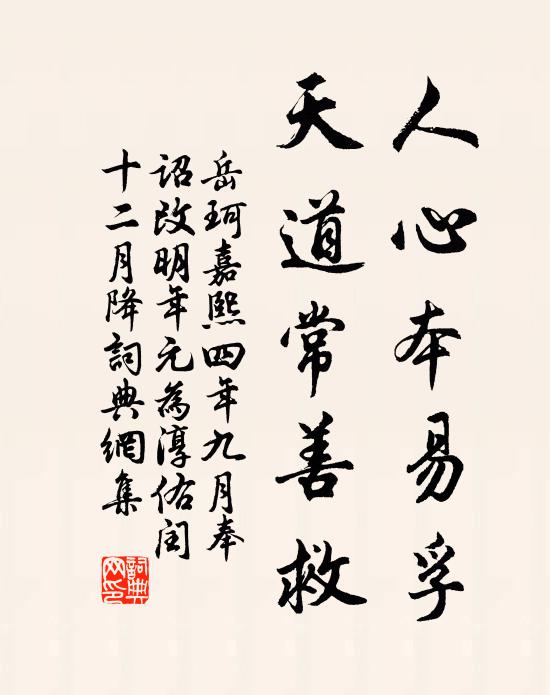 人心本易孚
天道常善救
岳珂嘉熙四年九月奉
詔改明年元為淳佑闰
十二月降詞典網集
詞典网印